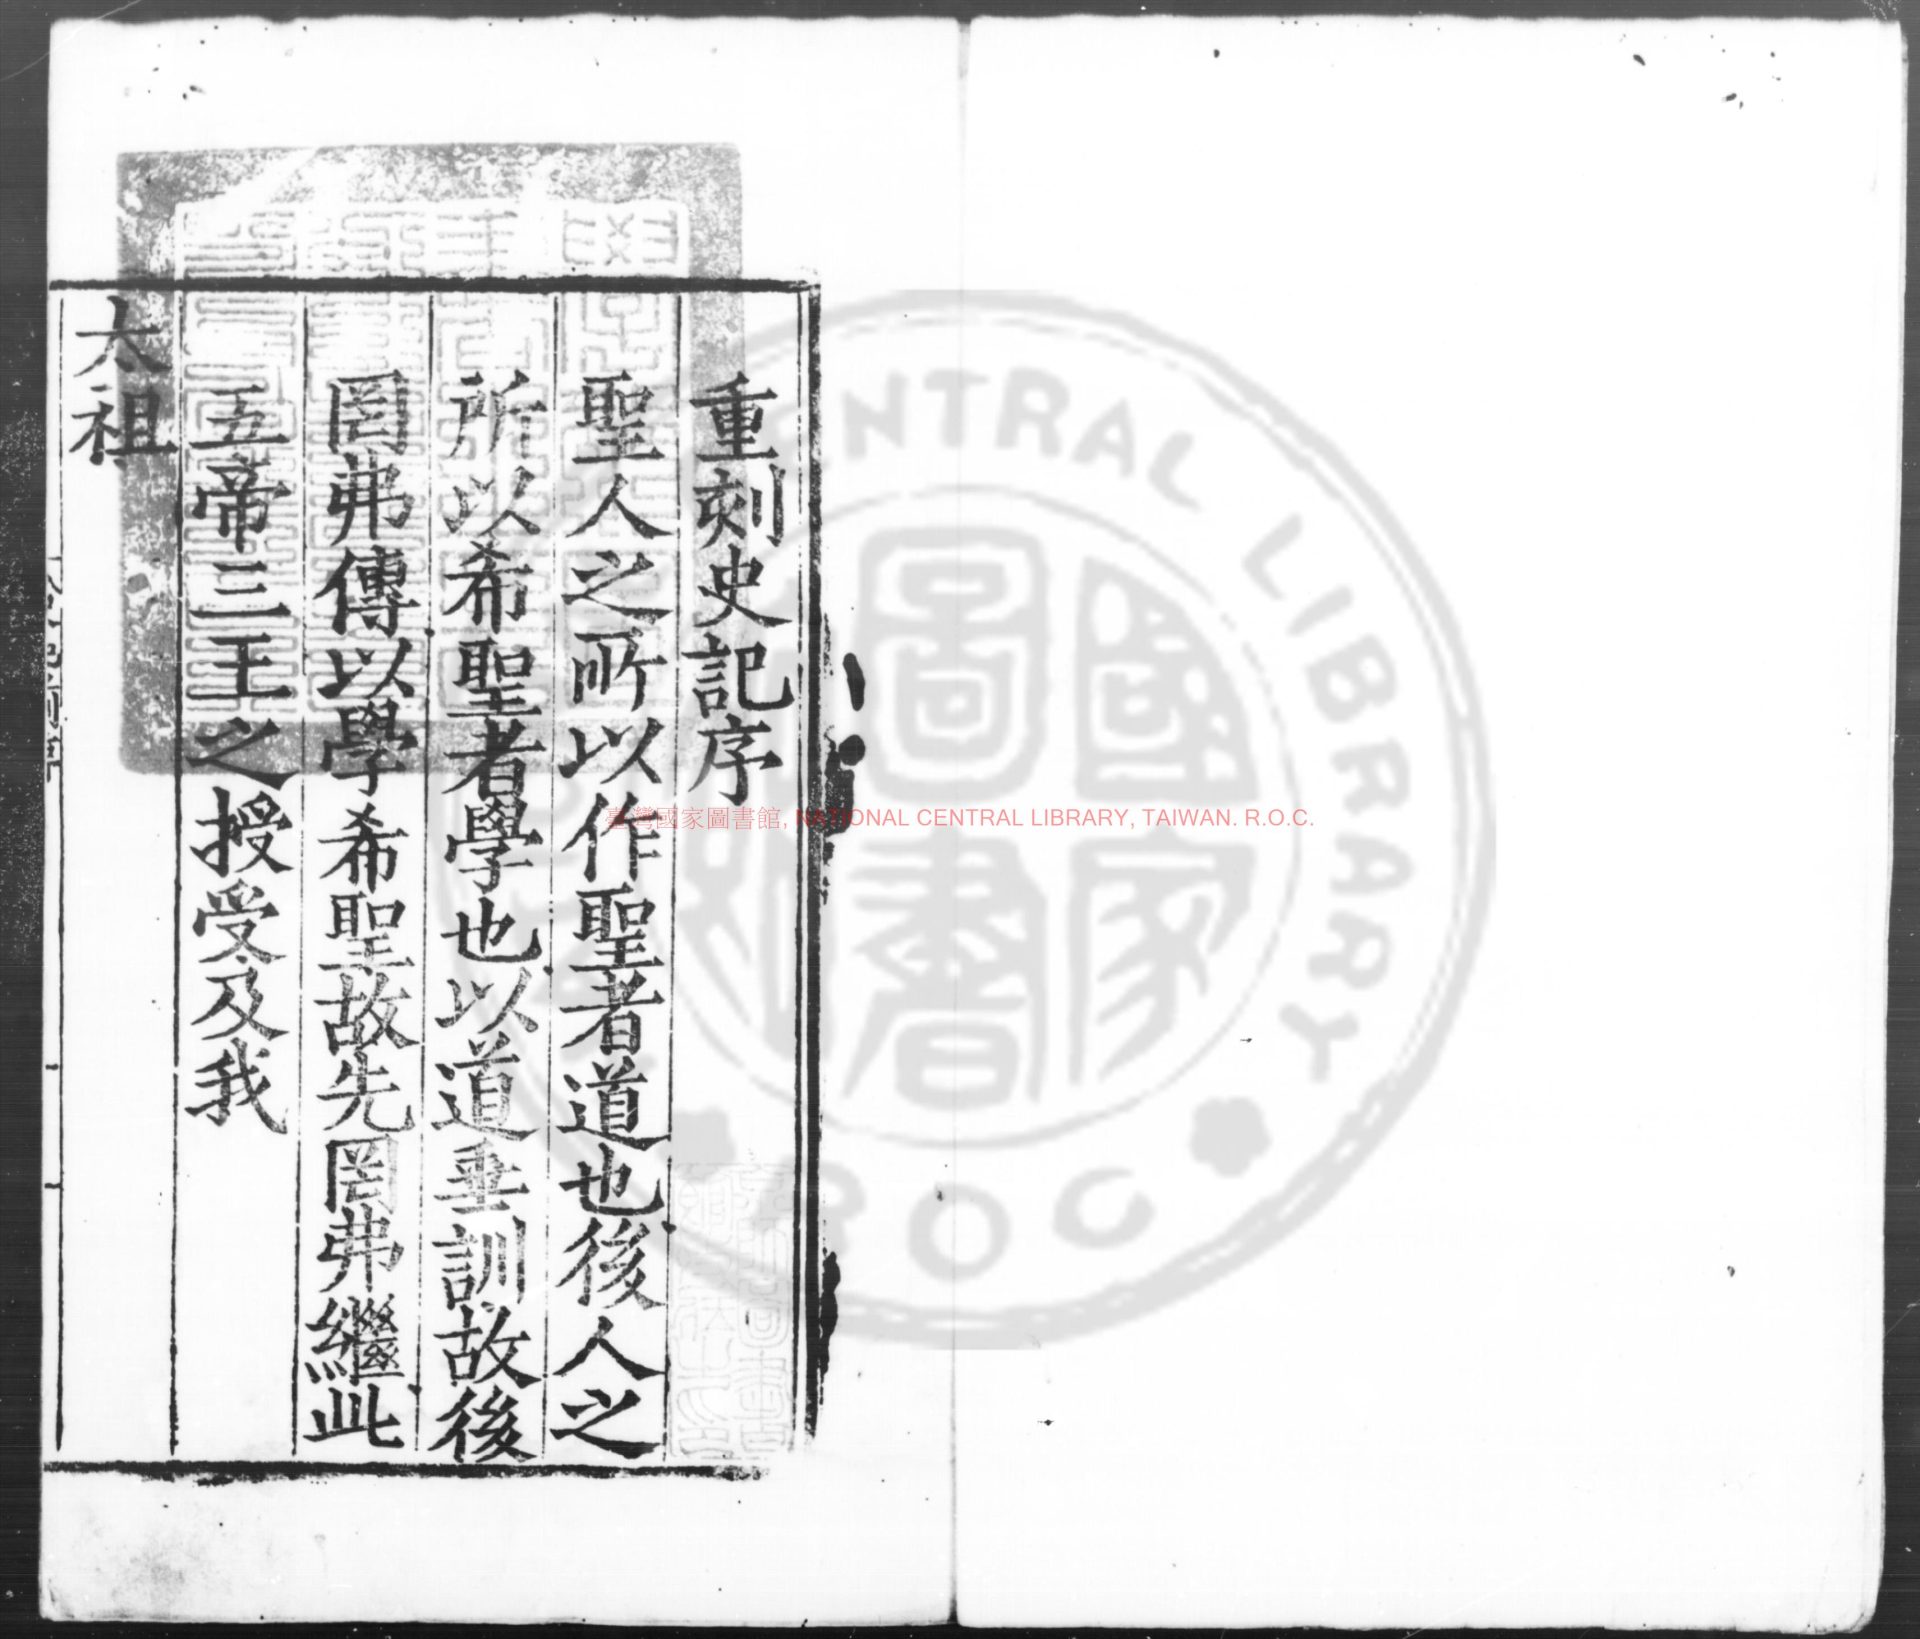 重刻史記序
聖人之所以作聖者道也後人之
所以希聖者學也以道垂訓故後
罔弗傳以學希聖故先罔弗繼此
五帝三王之授受及我
太祖
臺灣國家圖書館, NATIONAL CENTRAL LIBRARY, TAIWAN. R.O.C.
CENTRAL LIBRARY
ROC
國家
圖書